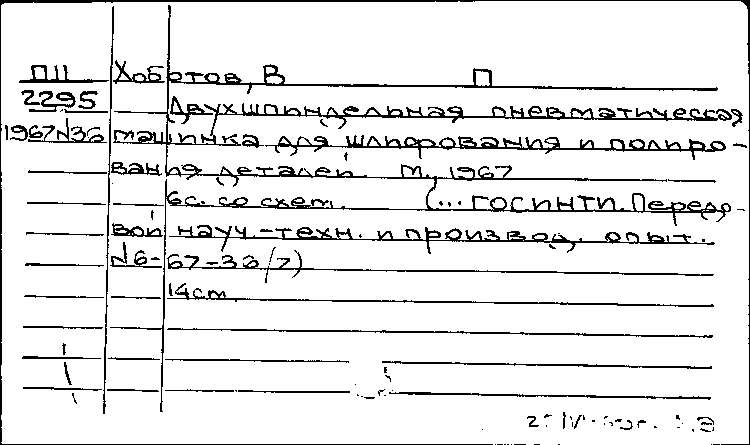 П11 Хоботов, В П
2295 Двухшпиндельная пневматическая
1967№36 машинка для шлифования и полиро-
вания деталей. М., 1967
6с. со схем. (... ГОСИНТИ. Передо-
вой науч.-техн. и производ. опыт.
№6-67-36/7)
14cm.